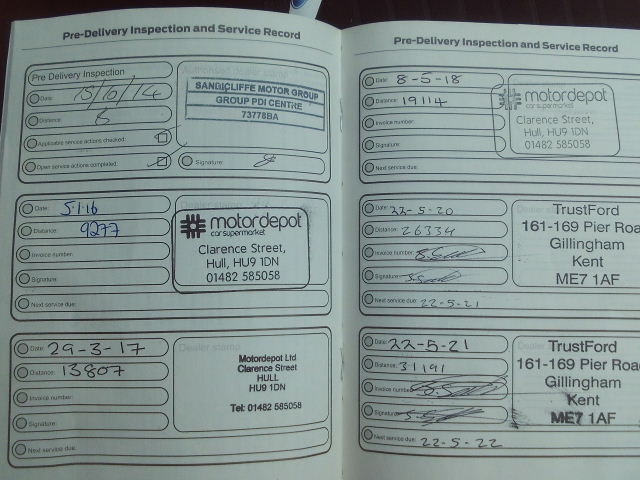 Pre-Delivery Inspection and Service Record
Pre Delivery Inspection
Date: 15/10/14
Distance: 6
Applicable service actions checked:
Open service actions completed:
Authorised dealer stamp
SANDICLIFFE MOTOR GROUP
GROUP PDI CENTRE
73778BA
Signature:
Date: 5.1.16
Distance: 9277
Invoice number:
Signature:
Next service due:
Dealer stamp
motordepot
car supermarket
Clarence Street,
Hull, HU9 1DN
01482 585058
Date: 29-3-17
Distance: 13807
Invoice number:
Signature:
Next service due:
Dealer stamp
Motordepot Ltd
Clarence Street
HULL
HU9 1DN
Tel: 01482 585058
Pre-Delivery Inspection and Service Record
Date: 8-5-18
Distance: 19114
Invoice number:
Signature:
Next service due:
motordepot
car supermarket
Clarence Street,
Hull, HU9 1DN
01482 585058
Date: 22-5-20
Distance: 26334
Invoice number:
Signature:
Next service due: 22-5-21
TrustFord
161-169 Pier Roa
Gillingham
Kent
ME7 1AF
Date: 22-5-21
Distance: 31191
Invoice number:
Signature:
Next service due: 22-5-22
Dealer
TrustFord
161-169 Pier Roa
Gillingham
Kent
ME7 1AF